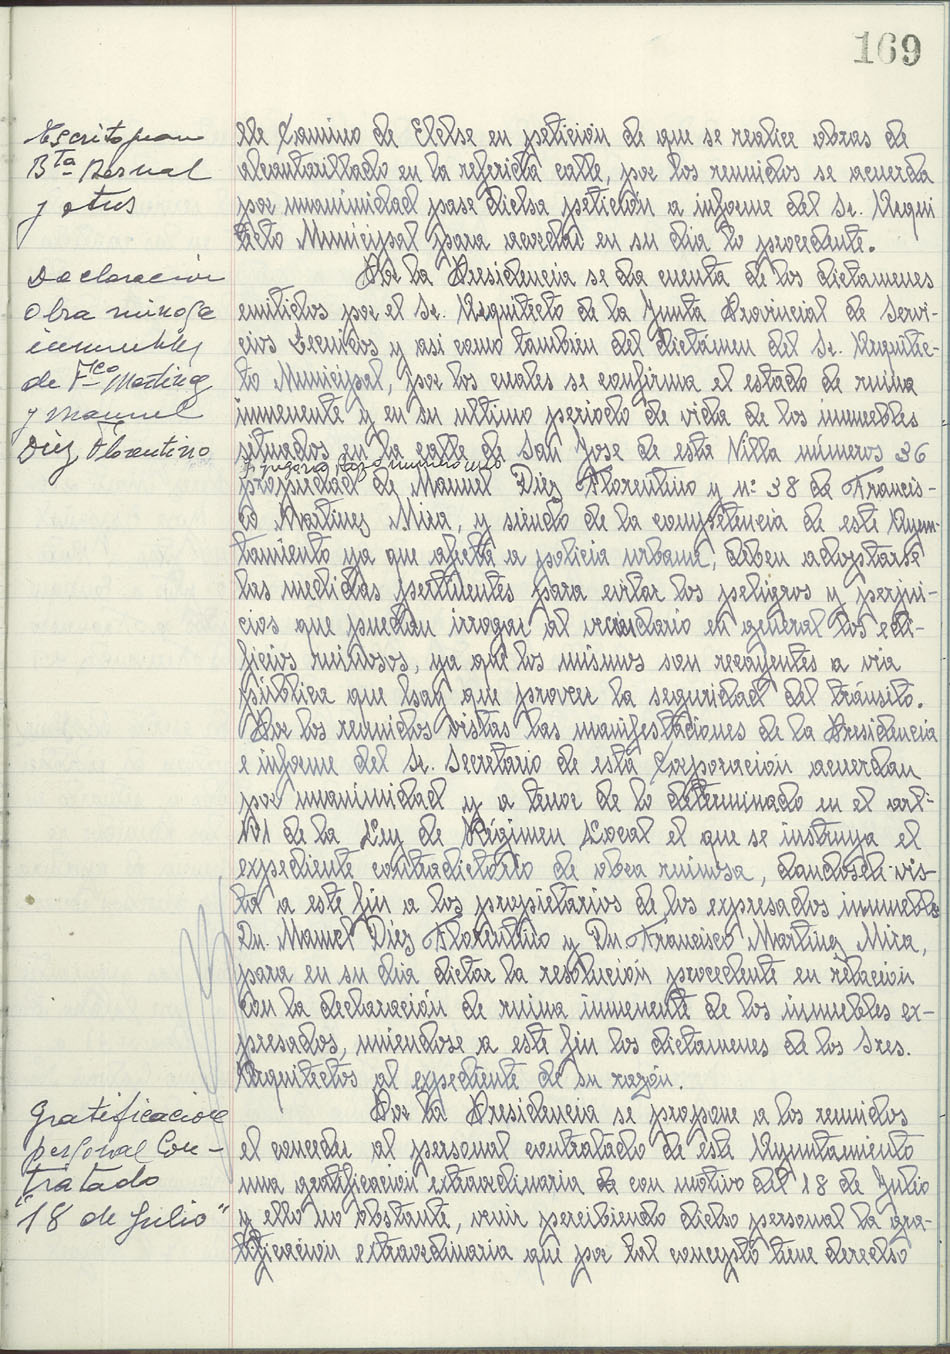 169
Escrito Juan
Bta Bernal
y otros
lle Camino de Elche en petición de que se realice obras de
alcantarillado en la referida calle, por los reunidos se acuerda
por unanimidad pase dicha petición a informe del Sr. Arqui
tecto Municipal para acordar en su dia lo procedente.
Declaración
obra ruinosa
inmuebles
de Fco Martinez
y Manuel
Diez Florentino
Por la Presidencia se da cuenta de los dictamenes
emitidos por el Sr. Arquitecto de la Junta Provincial de Servi-
cios Tecnicos y asi como tambien del Dictámen del Sr. Arquitec-
to Municipal, por los cuales se confirma el estado de ruina
inmenente y en su ultimo periodo de vida de los inmuebles
situados en la calle de San Jose de esta Villa números 36
propiedad de Manuel Diez Florentino y nº 38 de Francis-
co Martinez Mira, y siendo de la competencia de este Ayun-
tamiento ya que afecta a policia urbana, deben adoptarse
las medidas pertinentes para evitar los peligros y perjui-
cios que puedan irrogar al vecindario en general los edi-
ficios ruinosos, ya que los mismos son recayentes a via
pública que hay que proveer la seguridad del tránsito.
Por los reunidos vistas las manifestaciones de la Presidencia
e informe del Sr. Secretario de esta Corporación acuerdan
por unanimidad y a tenor de lo determinado en el arti-
101 de la Ley de Régimen Local el que se instruya el
expediente contradictorio de obra ruinosa, dandosele vis-
ta a este fin a los propietarios de los expresados inmuebles
Dn. Manuel Diez Florentino y Dn Francisco Martinez Mira,
para en su dia dictar la resolución procedente en relacion
con la declaración de ruina inmenente de los inmuebles ex-
presados, uniendose a este fin los dictamenes de los Sres.
Arquitectos al expediente de su razón.
Gratificacion
personal Con-
tratado
"18 de Julio"
Por la Presidencia se propone a los reunidos
el conceder al personal contratado de este Ayuntamiento
una gratificacion extraordinaria con motivo del 18 de Julio
y ello no obstante, venir percibiendo dicho personal la gra-
tificación extraordinaria que por tal concepto tiene derecho